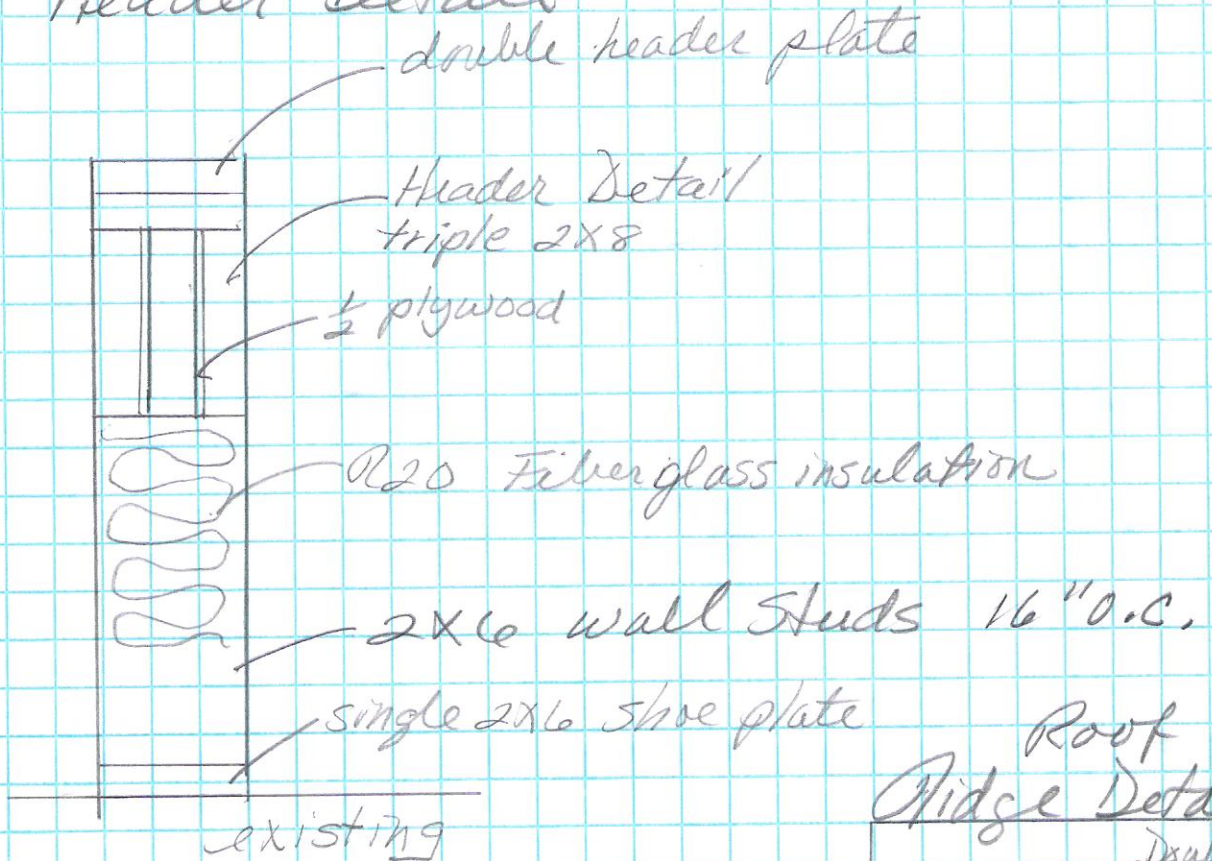 Header details
double header plate
Header Detail
triple 2x8
1/2 plywood
R20 Fiberglass insulation
2x6 wall studs 16" O.C.
single 2x6 shoe plate
existing
Roof
Ridge Deta